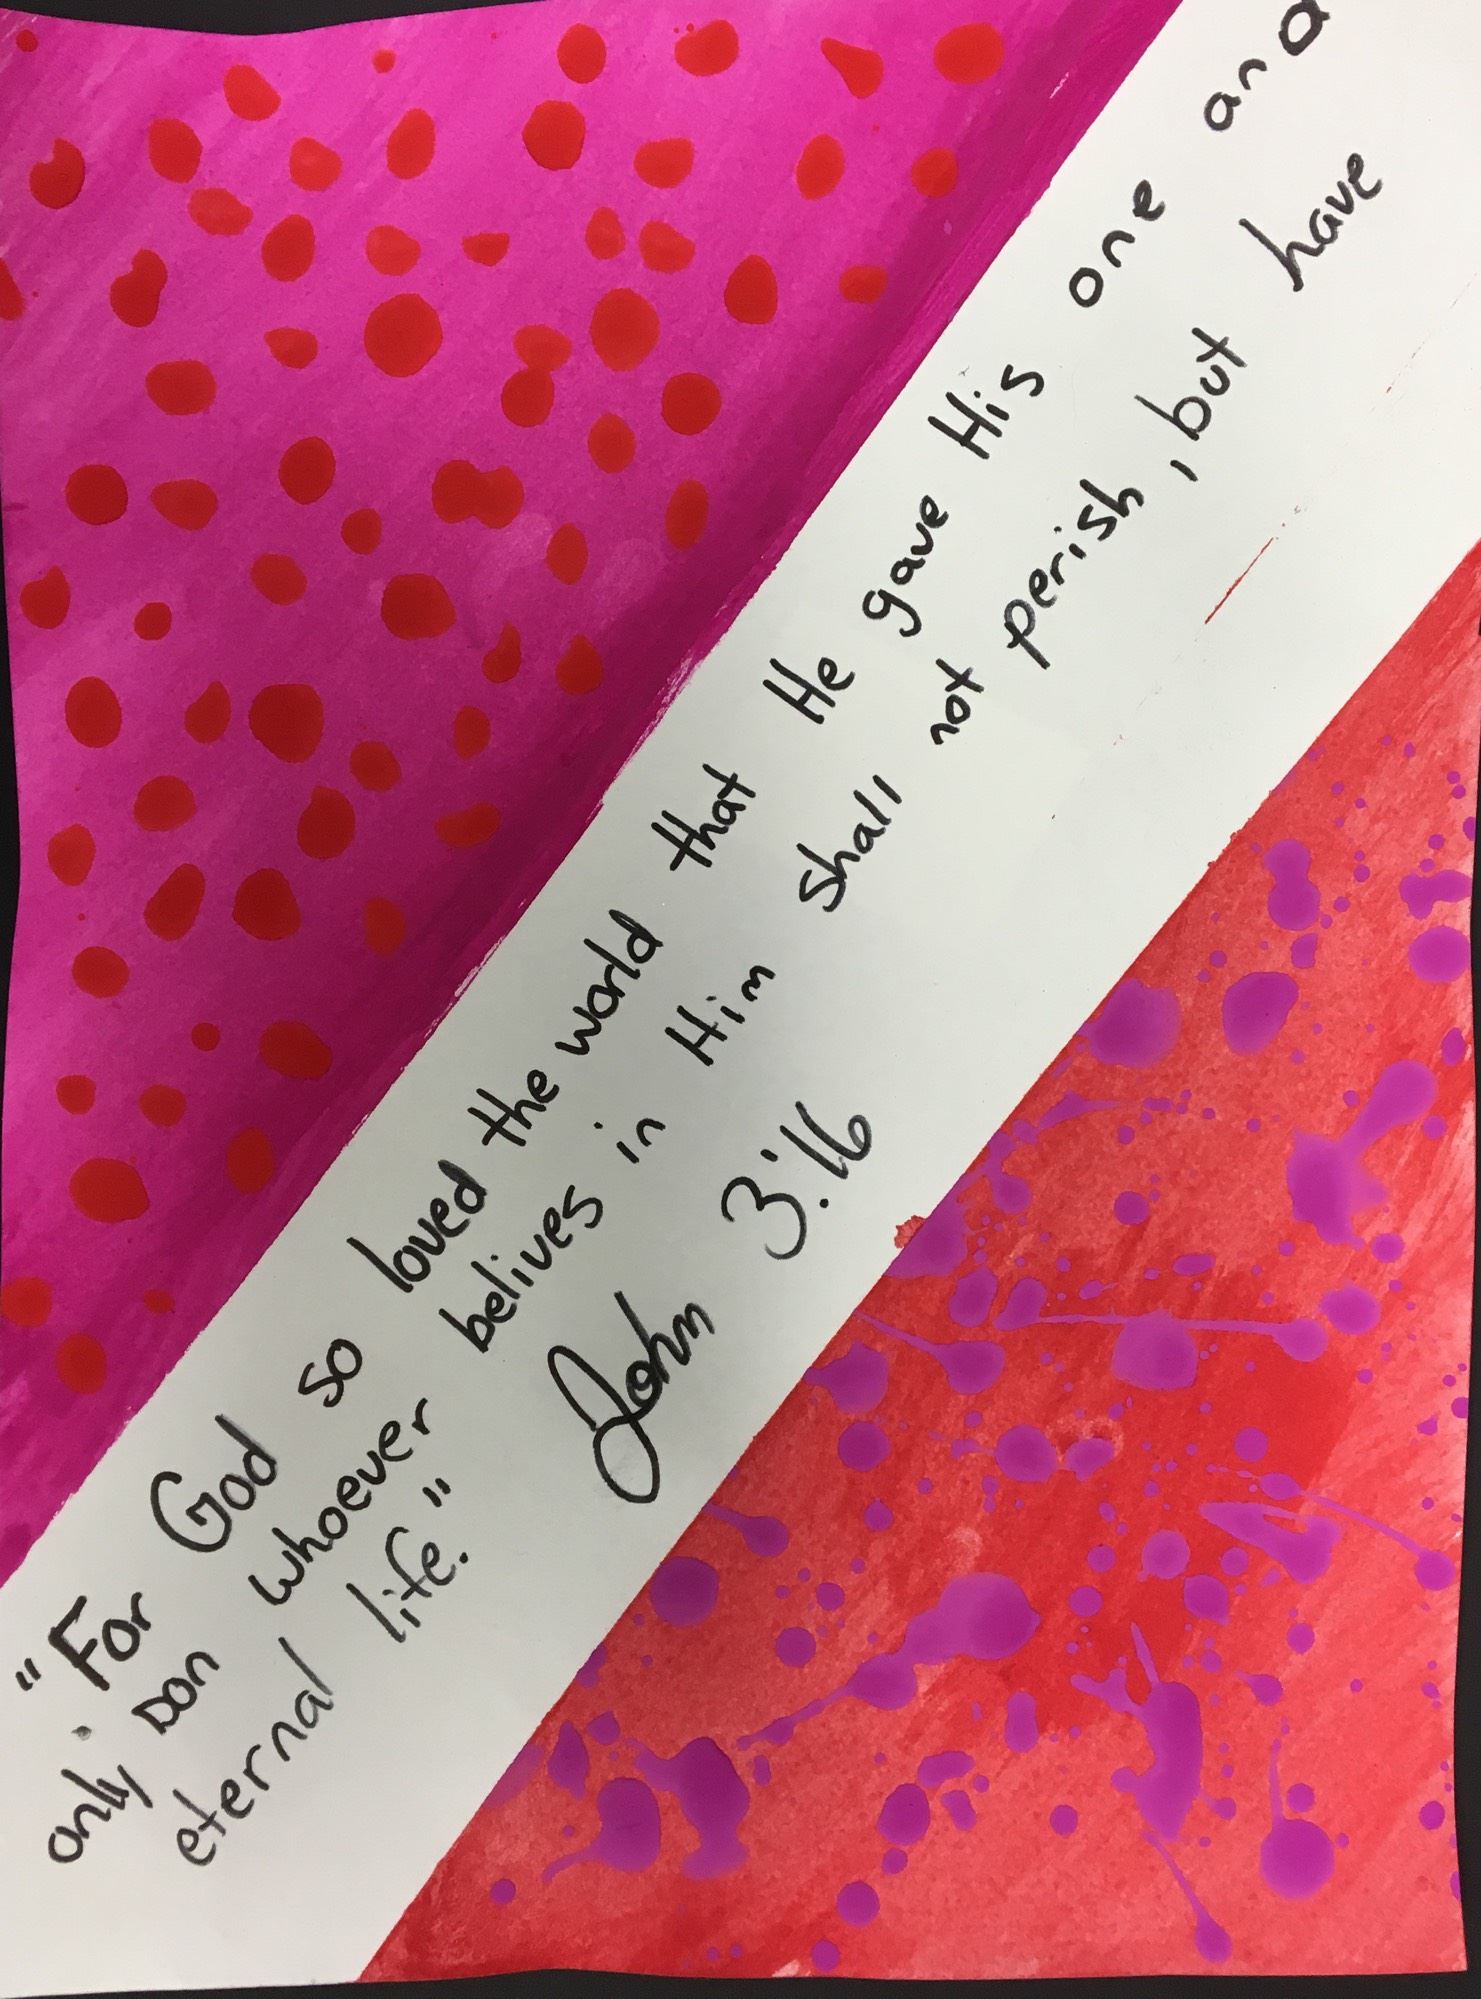 "For God so loved the world that He gave His one and
only Son whoever belives in Him shall not perish, but have
eternal life."
John 3:16